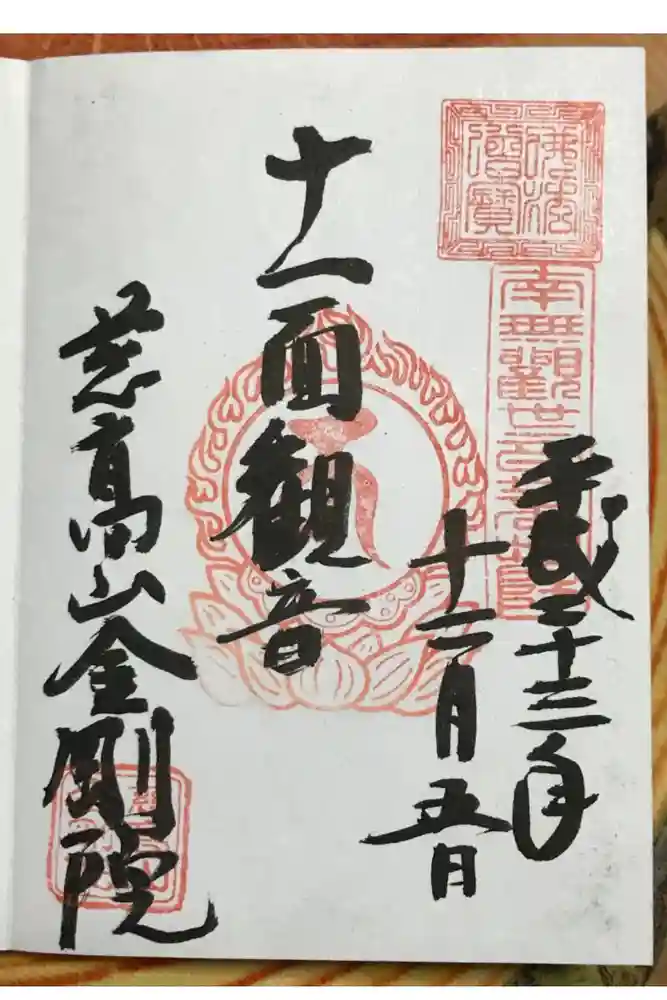 佛法
僧寶
南無觀世音菩薩
平成二十三年
十一月五日
十一面観音
慈高山金剛院